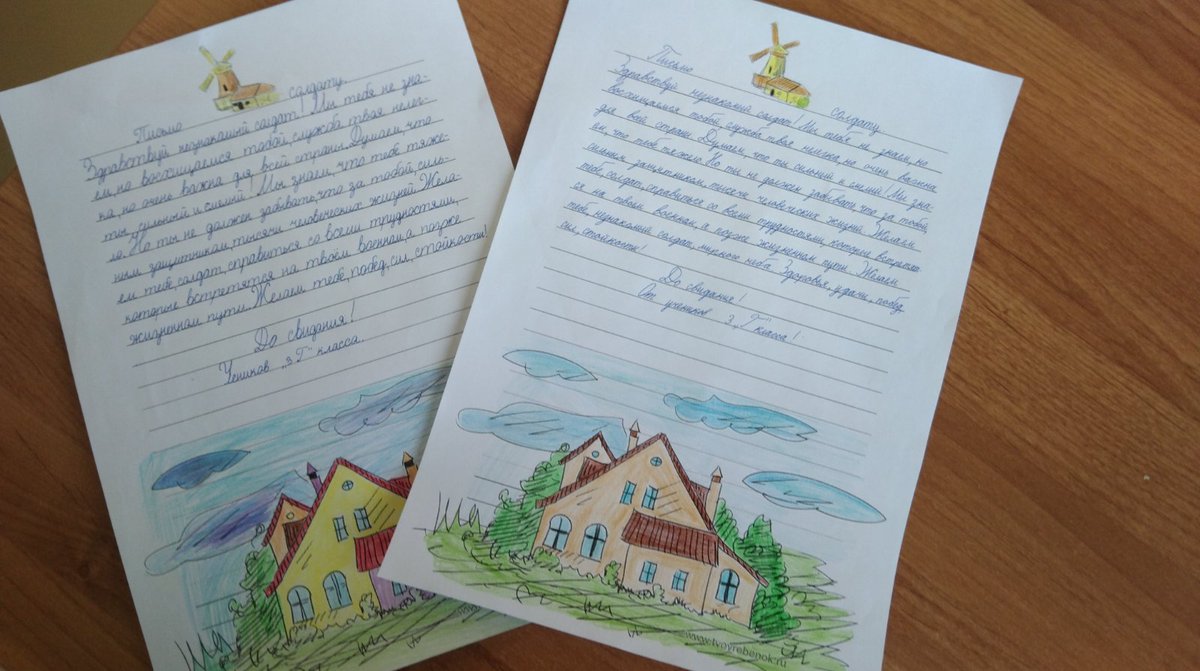 Письмо солдату.
Здравствуй незнакомый солдат! Мы тебя не зна-
ем, но восхищаемся тобой, служба твоя нелег-
ка, но очень важна для всей страны. Думаем, что
ты сильный и смелый! Мы знаем, что тебе тяже-
ло. Но ты не должен забывать, что за тобой, силь-
ным защитником, тысячи человеческих жизней. Жела-
ем тебе, солдат, справиться со всеми трудностями,
которые встретятся на твоём военном, а позже
жизненном пути. Желаем тебе, побед, сил, стойкости!
До свидания!
Учеников „3 Г" класса.
Письмо солдату
Здравствуй незнакомый солдат! Мы тебя не знаем, но
восхищаемся тобой, служба твоя нелегка, но очень важна
для всей страны. Думаем, что ты сильный и смелый! Мы зна-
ем, что тебе тяжело. Но ты не должен забывать, что за тобой,
сильным защитником, тысячи человеческих жизней. Желаем
тебе, солдат, справиться со всеми трудностями, которые встретят-
ся на твоём военном, а позже жизненном пути. Желаем
тебе, незнакомый солдат, мирного неба. Здоровья, удачи, побед,
сил, стойкости!
До свидания!
От учеников 3 „Г" класса!
www.tvoyrebenok.ru